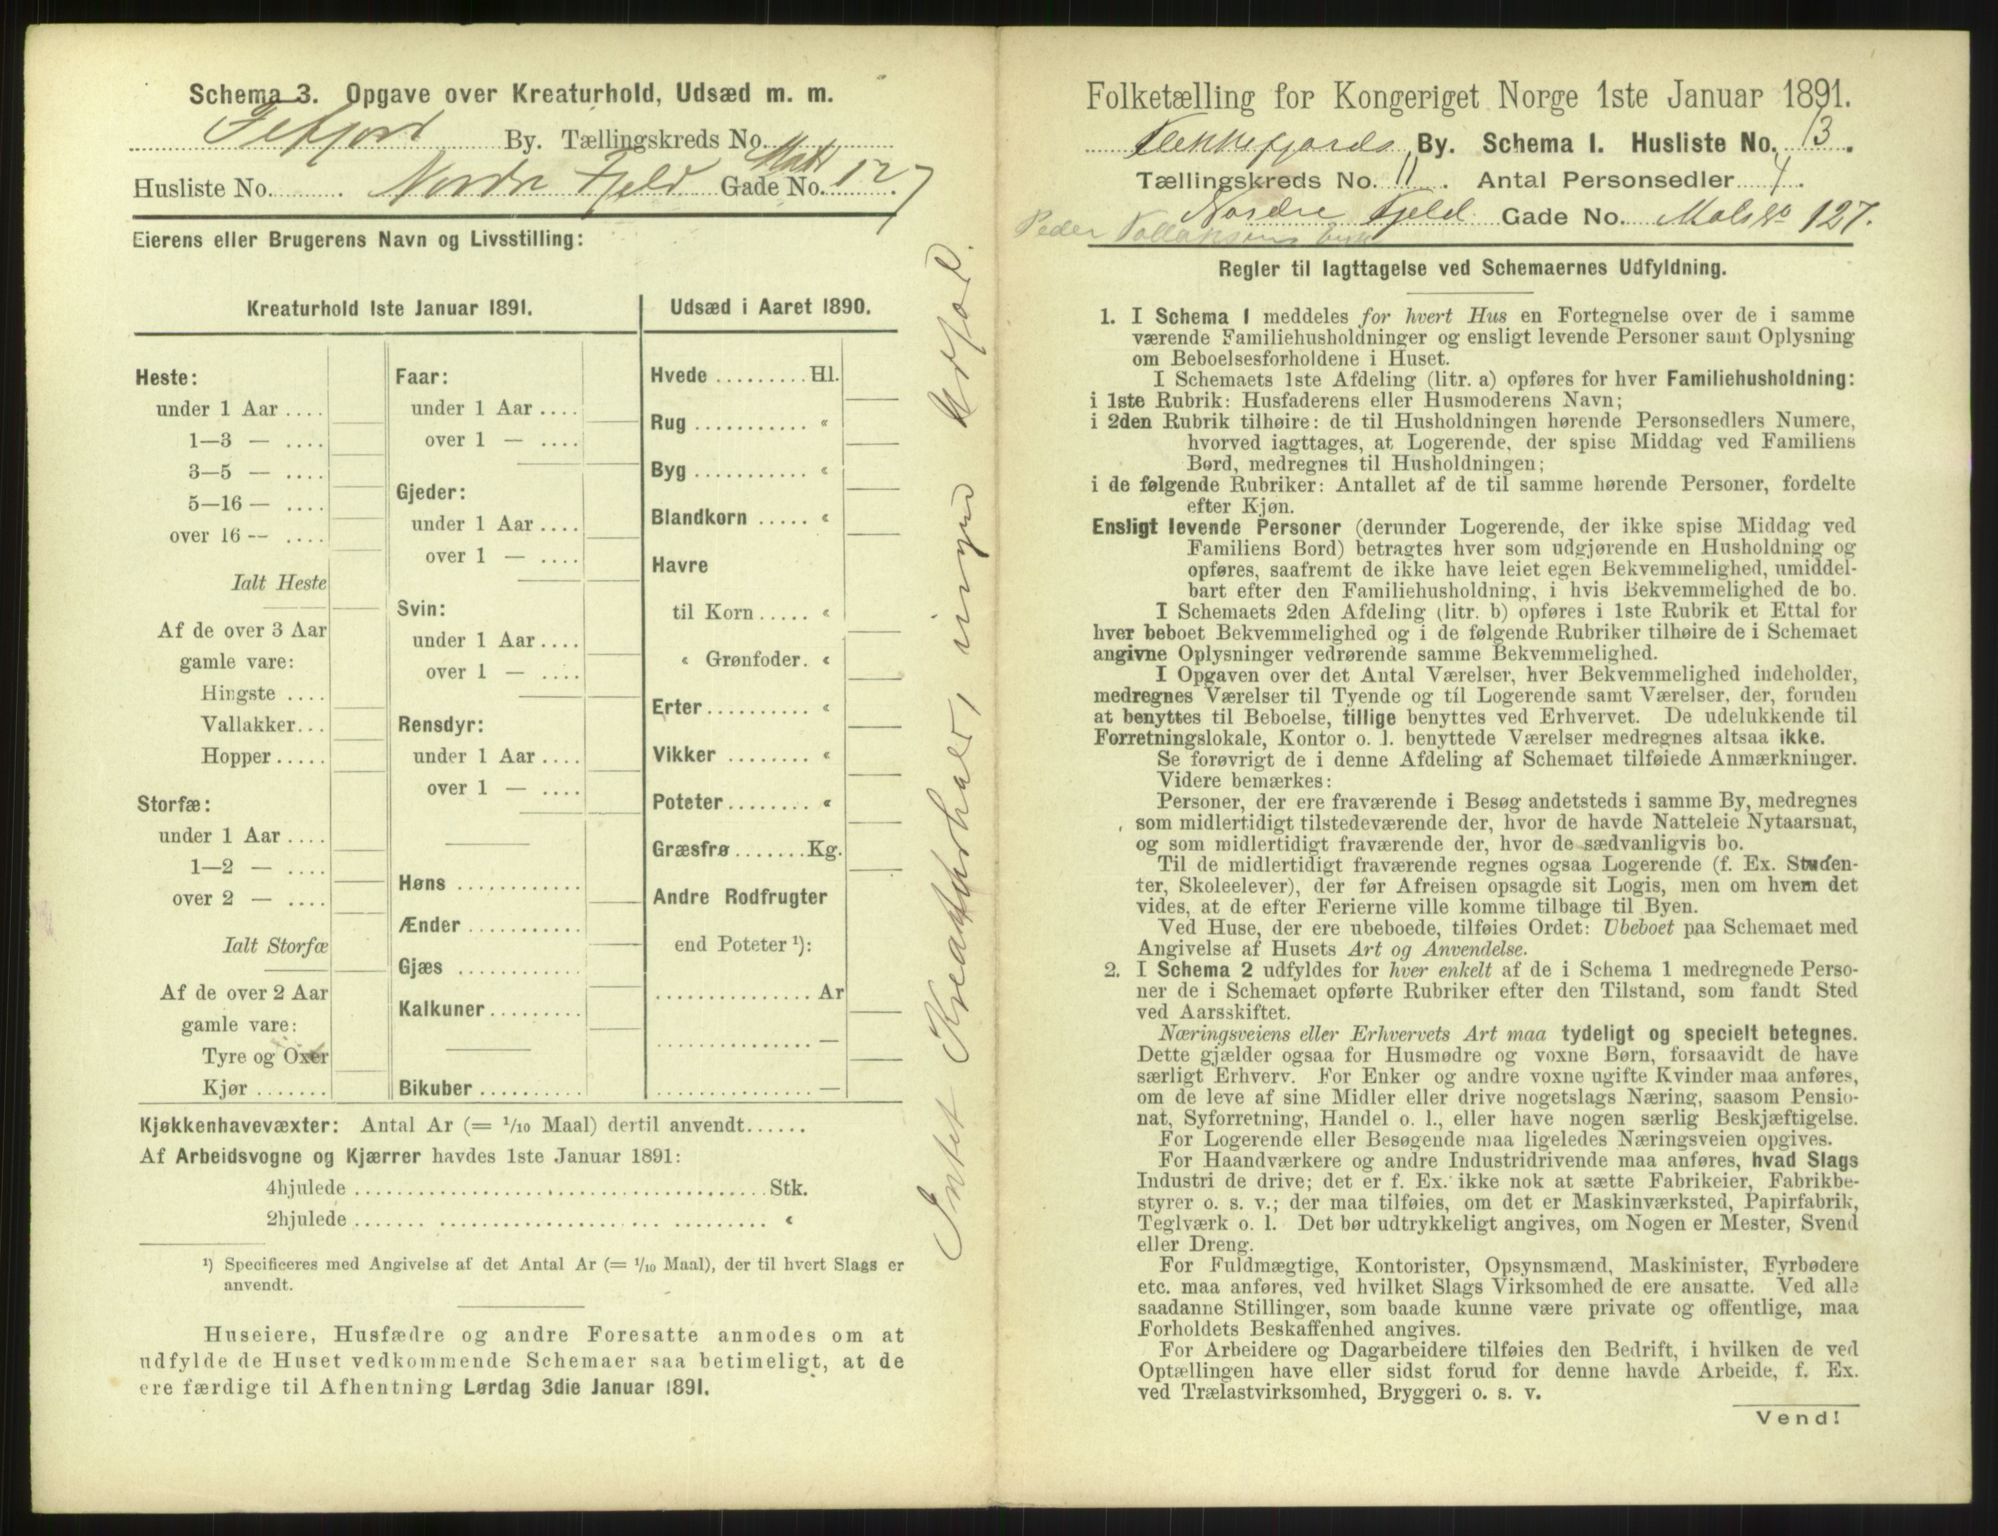 Schema 3. Opgave over Kreaturhold, Udsæd m. m.
By. Tællingskreds No.
Husliste No. Nordre Fjeld Gade No. 127
Eierens eller Brugerens Navn og Livsstilling:
Kreaturhold 1ste Januar 1891.
Heste:
under 1 Aar ....
1—3 — ....
3—5 — ....
5—16 — ....
over 16 — ....
Ialt Heste
Af de over 3 Aar
gamle vare:
Hingste ....
Vallakker...
Hopper .....
Storfæ:
under 1 Aar ....
1—2 — ....
over 2 — ....
Ialt Storfæ
Af de over 2 Aar
gamle vare:
Tyre og Oxer
Kjør .......
Faar:
under 1 Aar ....
over 1 — ....
Gjeder:
under 1 Aar ....
over 1 — ....
Svin:
under 1 Aar ....
over 1 — ....
Rensdyr:
under 1 Aar ....
over 1 — ....
Høns ............
Ænder ...........
Gjæs ............
Kalkuner.........
Bikuber ..........
Udsæd i Aaret 1890.
Hvede ......... Hl.
Rug ........... «
Byg ........... «
Blandkorn ..... «
Havre
til Korn ..... «
« Grønfoder. «
Erter.......... «
Vikker ........ «
Poteter ....... «
Græsfrø ....... Kg.
Andre Rodfrugter
end Poteter ¹):
............... Ar
............... —
............... —
Intet Kreaturhold, ingen Udsæd.
Kjøkkenhavevæxter: Antal Ar (= 1/10 Maal) dertil anvendt......
Af Arbeidsvogne og Kjærrer havdes 1ste Januar 1891:
4hjulede ........................................ Stk.
2hjulede ........................................ «
¹) Specificeres med Angivelse af det Antal Ar (= 1/10 Maal), der til hvert Slags er
anvendt.
Huseiere, Husfædre og andre Foresatte anmodes om at
udfylde de Huset vedkommende Schemaer saa betimeligt, at de
ere færdige til Afhentning Lørdag 3die Januar 1891.
Folketælling for Kongeriget Norge 1ste Januar 1891.
Flekkefjords By. Schema 1. Husliste No. 13.
Tællingskreds No. 11. Antal Personsedler 4.
Nordre Fjeld Gade No. 127.
Peder
Regler til Iagttagelse ved Schemaernes Udfyldning.
1. I Schema 1 meddeles for hvert Hus en Fortegnelse over de i samme
værende Familiehusholdninger og ensligt levende Personer samt Oplysning
om Beboelsesforholdene i Huset.
I Schemaets 1ste Afdeling (litr. a) opføres for hver Familiehusholdning:
i 1ste Rubrik: Husfaderens eller Husmoderens Navn;
i 2den Rubrik tilhøire: de til Husholdningen hørende Personsedlers Numere,
hvorved iagttages, at Logerende, der spise Middag ved Familiens
Bord, medregnes til Husholdningen;
i de følgende Rubriker: Antallet af de til samme hørende Personer, fordelte
efter Kjøn.
Ensligt levende Personer (derunder Logerende, der ikke spise Middag ved
Familiens Bord) betragtes hver som udgjørende en Husholdning og
opføres, saafremt de ikke have leiet egen Bekvemmelighed, umiddel-
bart efter den Familiehusholdning, i hvis Bekvemmelighed de bo.
I Schemaets 2den Afdeling (litr. b) opføres i 1ste Rubrik et Ettal for
hver beboet Bekvemmelighed og i de følgende Rubriker tilhøire de i Schemaet
angivne Oplysninger vedrørende samme Bekvemmelighed.
I Opgaven over det Antal Værelser, hver Bekvemmelighed indeholder,
medregnes Værelser til Tyende og til Logerende samt Værelser, der, foruden
at benyttes til Beboelse, tillige benyttes ved Erhvervet. De udelukkende til
Forretningslokale, Kontor o. l. benyttede Værelser medregnes altsaa ikke.
Se forøvrigt de i denne Afdeling af Schemaet tilføiede Anmærkninger.
Videre bemærkes:
Personer, der ere fraværende i Besøg andetsteds i samme By, medregnes
som midlertidigt tilstedeværende der, hvor de havde Natteleie Nytaarsnat,
og som midlertidigt fraværende der, hvor de sædvanligvis bo.
Til de midlertidigt fraværende regnes ogsaa Logerende (f. Ex. Studen-
ter, Skoleelever), der før Afreisen opsagde sit Logis, men om hvem det
vides, at de efter Ferierne ville komme tilbage til Byen.
Ved Huse, der ere ubeboede, tilføies Ordet: Ubeboet paa Schemaet med
Angivelse af Husets Art og Anvendelse.
2. I Schema 2 udfyldes for hver enkelt af de i Schema 1 medregnede Perso-
ner de i Schemaet opførte Rubriker efter den Tilstand, som fandt Sted
ved Aarsskiftet.
Næringsveiens eller Erhvervets Art maa tydeligt og specielt betegnes.
Dette gjælder ogsaa for Husmødre og voxne Børn, forsaavidt de have
særligt Erhverv. For Enker og andre voxne ugifte Kvinder maa anføres,
om de leve af sine Midler eller drive nogetslags Næring, saasom Pensio-
nat, Syforretning, Handel o. l., eller have nogen særlig Beskjæftigelse.
For Logerende eller Besøgende maa ligeledes Næringsveien opgives.
For Haandværkere og andre Industridrivende maa anføres, hvad Slags
Industri de drive; det er f. Ex. ikke nok at sætte Fabrikeier, Fabrikbe-
styrer o. s. v.; der maa tilføies, om det er Maskinværksted, Papirfabrik,
Teglværk o. l. Det bør udtrykkeligt angives, om Nogen er Mester, Svend
eller Dreng.
For Fuldmægtige, Kontorister, Opsynsmænd, Maskinister, Fyrbødere
etc. maa anføres, ved hvilket Slags Virksomhed de ere ansatte. Ved alle
saadanne Stillinger, som baade kunne være private og offentlige, maa
Forholdets Beskaffenhed angives.
For Arbeidere og Dagarbeidere tilføies den Bedrift, i hvilken de ved
Optællingen have eller sidst forud for denne havde Arbeide, f. Ex.
ved Trælastvirksomhed, Bryggeri o. s. v.
Vend!